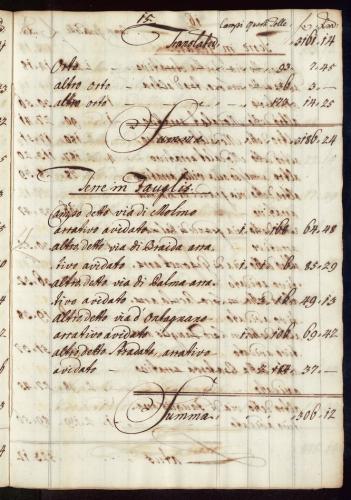 15.
Campi quarti Tolle
Translato 3161.14
Orto 93 7.45
altro orto 36 3.—
altro orto 173 14.25
Summa 3186.24
Terre in Fauglis.
Campo detto via di Molmo
arrativo avidato 1. 168 64.48
altro detto via di Braida arra
tivo avidato 85.29
altro detto via di Palma arra
tivo avidato 49.13
altro detto via d'Ontagnano
arrativo avidato 1 168 69.42
altro detto Stradato, arrativo
avidato 2 184 37.—
Summa 306.12